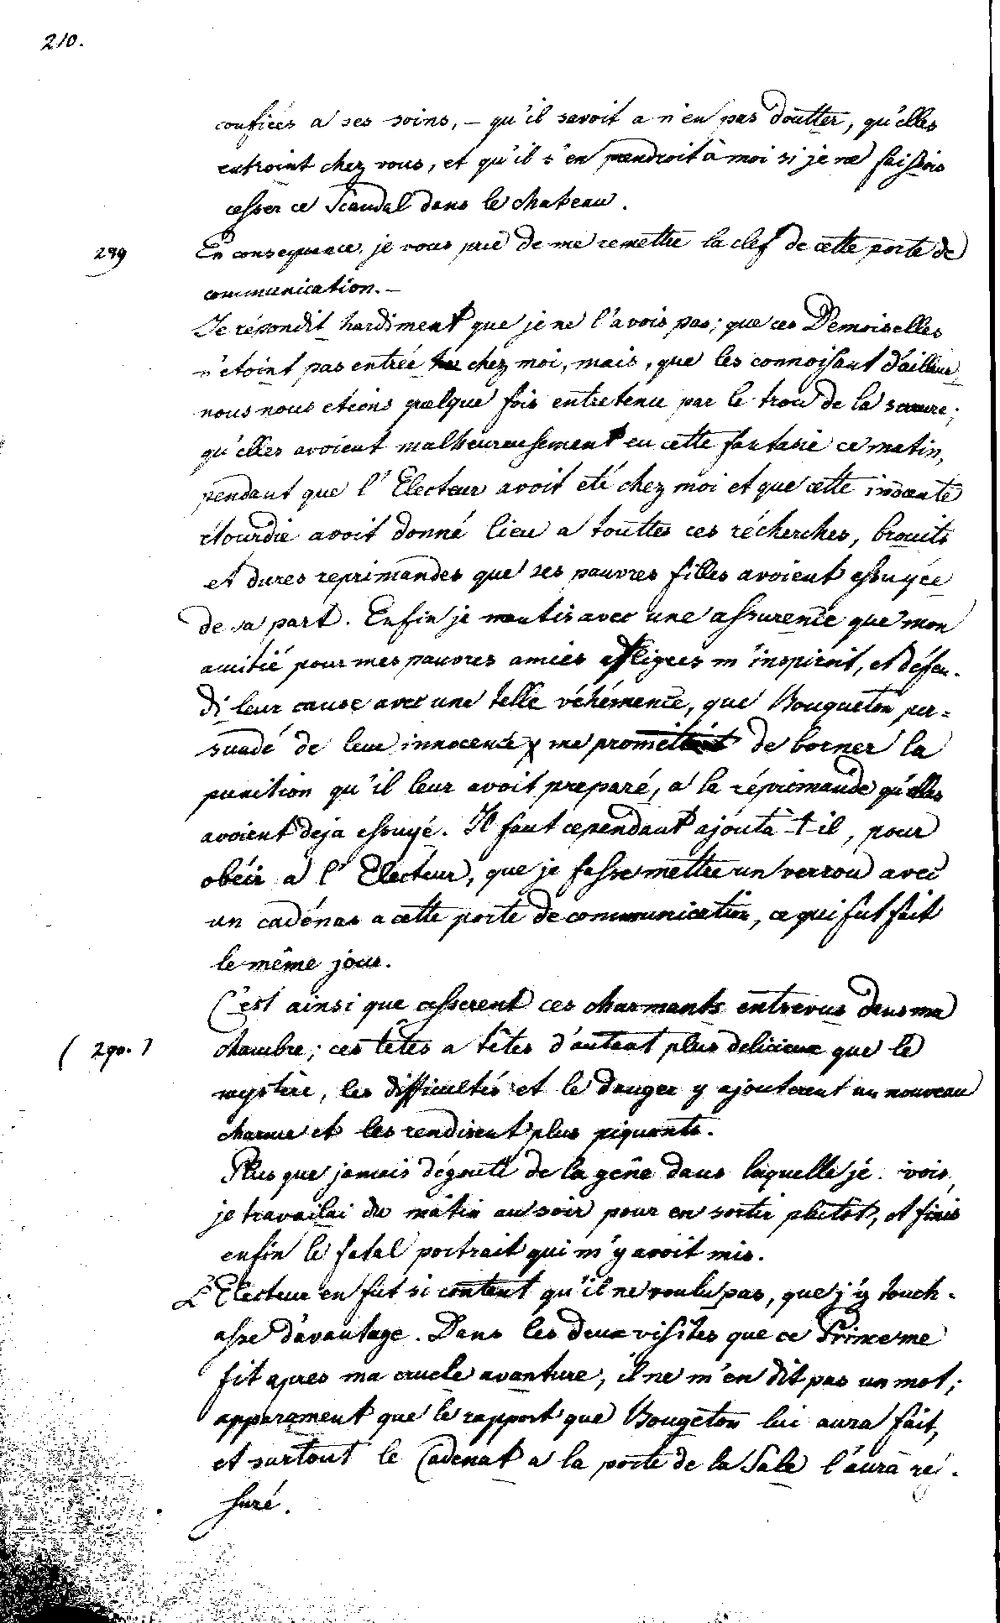 210.
confiées a ses soins, – qu'il savoit a n'en pas doutter, qu'elles
entroint chez vous, et qu'il s'en prendroit à moi si je ne faissois
cesser ce Scandal dans le chateau.
299 En consequence, je vous prie de me remettre la clef de cette porte de
communication. –
Je répondit hardiment que je ne l'avois pas; que ces Demoiselles
n'étoint pas entrée chez moi, mais, que les connoisant d'ailleur
nous nous etions quelque fois entretenu par le trou de la serrure;
qu'elles avoient malheureusement eu cette fantasie ce matin,
pendant que l'Electeur avoit été chez moi et que cette inocente
étourdie avoit donné lieu a touttes ces récherches, brouits
et dures reprimandes que ses pauvres filles avoient essuyée
de sa part. Enfin je mentis avec une assurence que mon
amitié pour mes pauvres amies affligées m'inspiroit, et défen-
di leur cause avec une telle véhémence, que Bouqueton per-
suadé de leur innocence, me promit de borner la
punition qu'il leur avoit preparé, a la réprimande qu'elles
avoient deja essuyé. Il faut cependant ajouta-t-il, pour
obéir a l'Electeur, que je fasse mettre un verrou avec
un cadénas a cette porte de communication, ce qui fut fait
le même jour.
C'est ainsi que cesserent ces charmants entrevus dans ma
(290.) chambre; ces têtes a têtes d'autant plus delicieux que le
mystère, les difficultés et le danger y ajouterent un nouveau
charme et les rendirent plus piquants.
Plus que jamais dégouté de la gêne dans laquelle j'é vois,
je travailai du matin au soir pour en sortir plutôt, et finis
enfin le fatal portrait qui m'y avoit mis.
L'Electeur en fut si content qu'il ne voulu pas, que j'y touch-
asse d'avantage. Dans les deux visites que ce Prince me
fit apres ma cruele avanture, il ne m'en dit pas un mot;
apparament que le rapport que Bougeton lui aura fait,
et surtout le Cadenat a la porte de la Sale l'aura ré-
suré.